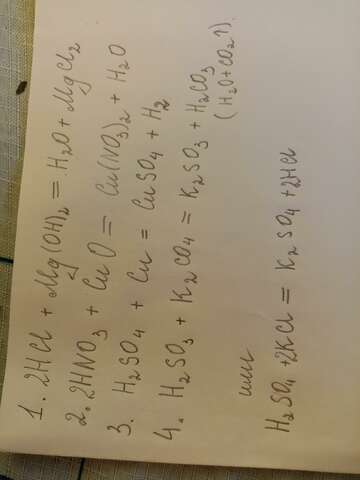 1. 2HCl + Mg(OH)₂ = H₂O + MgCl₂
2. 2HNO₃ + CuO = Cu(NO₃)₂ + H₂O
3. H₂SO₄ + Cu = CuSO₄ + H₂
4. H₂SO₃ + K₂CO₄ = K₂SO₃ + H₂CO₃
(H₂O+CO₂↑)
или
H₂SO₄ +2KCl = K₂SO₄ +2HCl